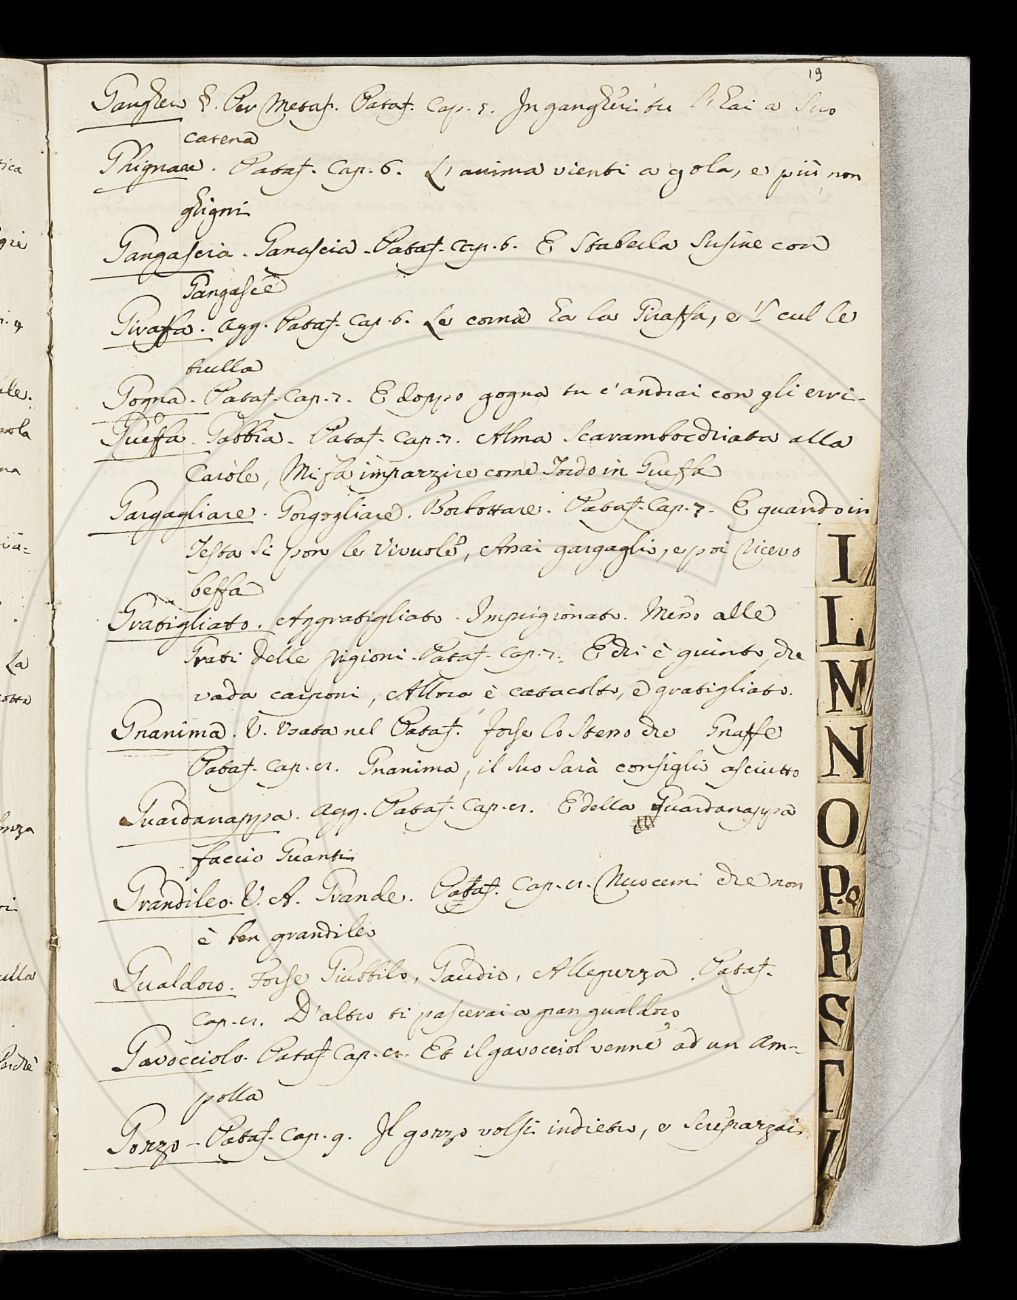 19
Gangheri §. Per Metaf. Pataf. Cap. 5. In gangheri tu l'hai a suo
catena
Ghignare. Pataf. Cap. 6. L'anima vienti a gola, e più non
ghigni
Gangascia. Ganascia. Pataf. Cap. 6. E susine con
Gangasce
Giraffa. agg. Pataf. Cap. 6. Le corna ha la Giraffa, e 'l cul le
trulla
Gogna. Pataf. Cap. 7. E doppo gogna tu c'andrai con gli erri.
Gueffa. Gabbia. Pataf. Cap. 7. Alma alla
Carole, Mi fa impazzire come Tordo in Gueffa
Gargagliare. Gorgogliare. Borbottare. Pataf. Cap. 7. E quando in
Testa si pon le vivuole, Assai gargaglio, e poi ricevo
beffa
Gratigliato. Aggratigliato. Imprigionato. Messo alle
Grati delle prigioni. Pataf. Cap. 7. E chi è giunto, che
vada carponi, Allora è catacolto, e gratigliato.
Gnanima. V. Usata nel Pataf. forse lo stesso che Gnaffe
Pataf. Cap. Gnanima, il suo sarà consiglio asciutto
Guardanappa. agg. Pataf. Cap. E della Guardanappa
faccio Guanti
Grandileo. V. A. Grande. Pataf. Cap. che non
è ben grandileo
Gualdoro. Forse Giubbilo, Gaudio, Allegrezza. Pataf.
Cap. D'altro ti pascerai a gran gualdoro
Gavocciolo. Pataf. Cap. Et il gavocciol venne ad un am-
polla
Gozzo - Pataf. Cap. 9. Il gozzo volsi indietro, e
I
L
M
N
O
P.Q
R
S
T
V